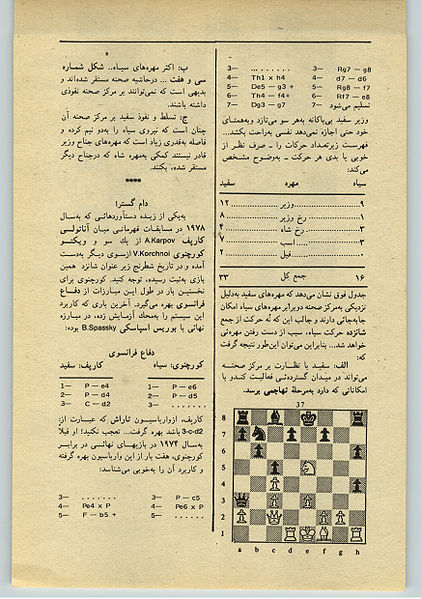 ۵
3— ........ 3— Rg7 — g8
4— Th1 x h4 4— d7 — d6
5— De5 — g3 + 5— Rg8 — f7
6— Th4 — f4+ 6— Rf7 — e8
7— Dg3 — g7 تسلیم می‌شود
وزیر سفید بی‌باکانه به‌هر سو می‌تازد وبه‌همتای
خود حتی اجازه نمی‌دهد نفسی به‌راحت بکشد...
فهرست زیرتعداد حرکات را — صرف نظر از
خوبی یا بدی هر حرکت — به‌وضوح مشخص
می‌کند:
سیاه مهره سفید
۹ وزیر ۱۲
۱ رخ وزیر ۸
۳ رخ شاه ۴
۳ اسب ۷
۰ فیل ۲
۱۶ جمع کل ۳۳
جدول فوق نشان می‌دهد که مهره‌های سفید به‌دلیل
نزدیکی به‌مرکز صحنه دوبرابر مهره‌های سیاه امکان
جابه‌جائی دارند و جالب این که نه حرکت از جمع
شانزده حرکت سیاه، سبب از دست رفتن مهره‌ئی
خواهد شد... بنابراین می‌توان این‌طور نتیجه گرفت
که:
الف: سفید با نظارت بر مرکز صحنه
می‌تواند در میدان گسترده‌ئی فعالیت کندو با
امکاناتی که دارد به‌مرحلهٔ تهاجمی برسد.
37
8
7
6
5
4
3
2
1
a b c d e f g h
ب: اکثر مهره‌های سیاه.. شکل شماره
سی و هفت ... درحاشیه صحنه مستقر شده‌اند و
بدیهی است که نمی‌توانند بر مرکز صحنه نفوذی
داشته باشند.
ج: تسلط و نفوذ سفید بر مرکز صحنه آن
چنان است که نیروی سیاه را به‌دو نیم کرده و
فاصله به‌قدری زیاد است که مهره‌های جناح وزیر
قادر نیستند کمکی به‌مهره شاه که درجناح دیگر
مستقر شده، بکنند.
****
دام گستر!
به‌یکی از زبده دستآوردهائی که به‌سال
۱۹۷۸ در مسابقات قهرمانی میان آناتولی
کارپف A.Karpov از یك سو و ویکتو
کورچنوی V.Korchnoi ازسوی دیگر به‌دست
آمده و در تاریخ شطرنج زیر عنوان شانزد همین
بازی به‌ثبت رسیده، توجه کنید. کورچنوی برای
نخستین بار در طول این مبارزات از دفاع
فرانسوی بهره می‌گیرد. آخرین باری که کاربرد
این سیستم را به‌محك آزمایش زده، در مبارزه
نهائی با بوریس اسپاسکی B.Spassky بوده:
دفاع فرانسوی
کورچنوی: سیاه کارپف: سفید
1— P — e4 1— P — e6
2— P — d4 2— P — d5
3— C — d2 3— .......
کارپف، ازواریاسیون تاراش که عبارت از:
3-c-d2 باشد بهره گرفت... تعجب نکنید! او قبلا
به‌سال ۱۹۷۴ در بازیهای نهائی در برابر
کورچنوی، هفت بار از این واریاسیون بهره گرفته
و کاربرد آن را به‌خوبی می‌شناسد:
3— ....... 3— P — c5
4— Pe4 x P 4— Pe6 x P
5— F — b5 + 5— .......